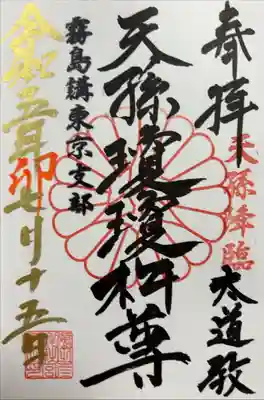 奉拝
天孫降臨
太道殿
天孫瓊瓊杵尊
霧島講東京支部
令和五年卯七月十五日